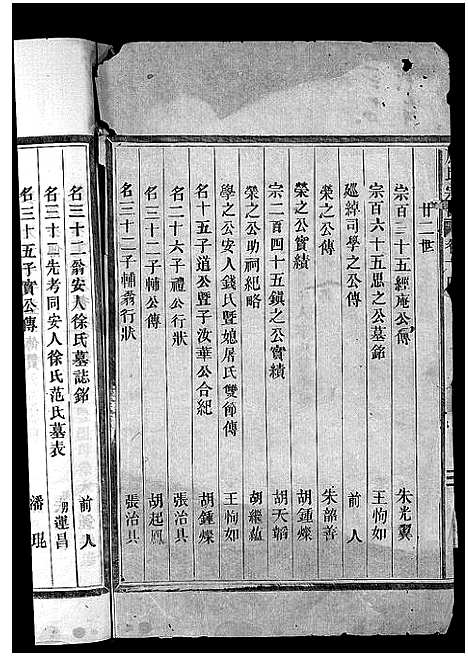 廿二世
宗百三十五經庵公傳 朱光翼
宗百六十五思之公墓銘 王恂如
廷綽司學之公傳 前人
榮之公傳 朱韶善
榮之公實績 胡鍾燦
宗二百四十五鎮之公實績 胡天韜
榮之公助祠紀略 胡繼
學之公安人錢氏暨媳屠氏雙節傳 王恂如
名十五子道公暨子汝華公合紀 胡鍾燦
名二十六子禮公行狀 張治具
名三十二子輔公傳 胡起鳳
名三十二子輔翁行狀 張治具
名三十二翁安人徐氏墓誌銘 前人
名三十二先考同安人徐氏范氏墓表 男運昌
名三十五子實公傳 潘琨